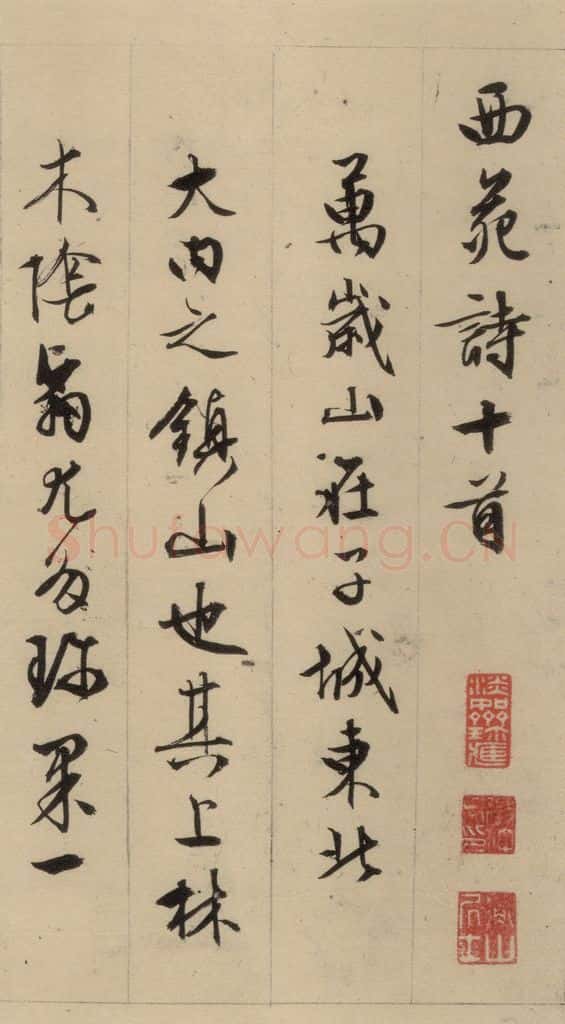 西苑詩十首
萬歲山在子城東北
大內之鎮山也其上林
木陰翳尤多珎果一
Shufawang.CN